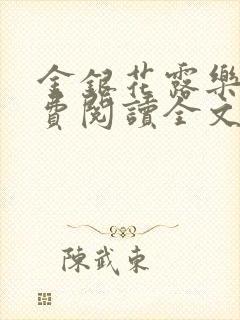 金銀花露樂
費閱讀全文
陳武東